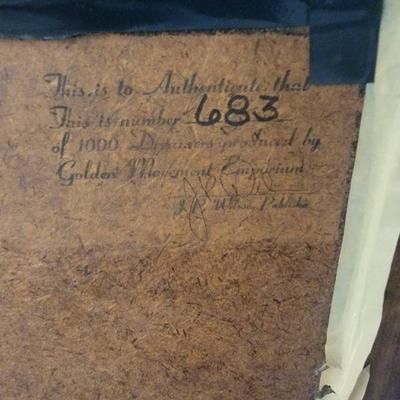 This is to Authenticate that
This is number 683
of 1000 Drawers produced by
Golden Movement Emporium
J. P. Wilson, Publisher